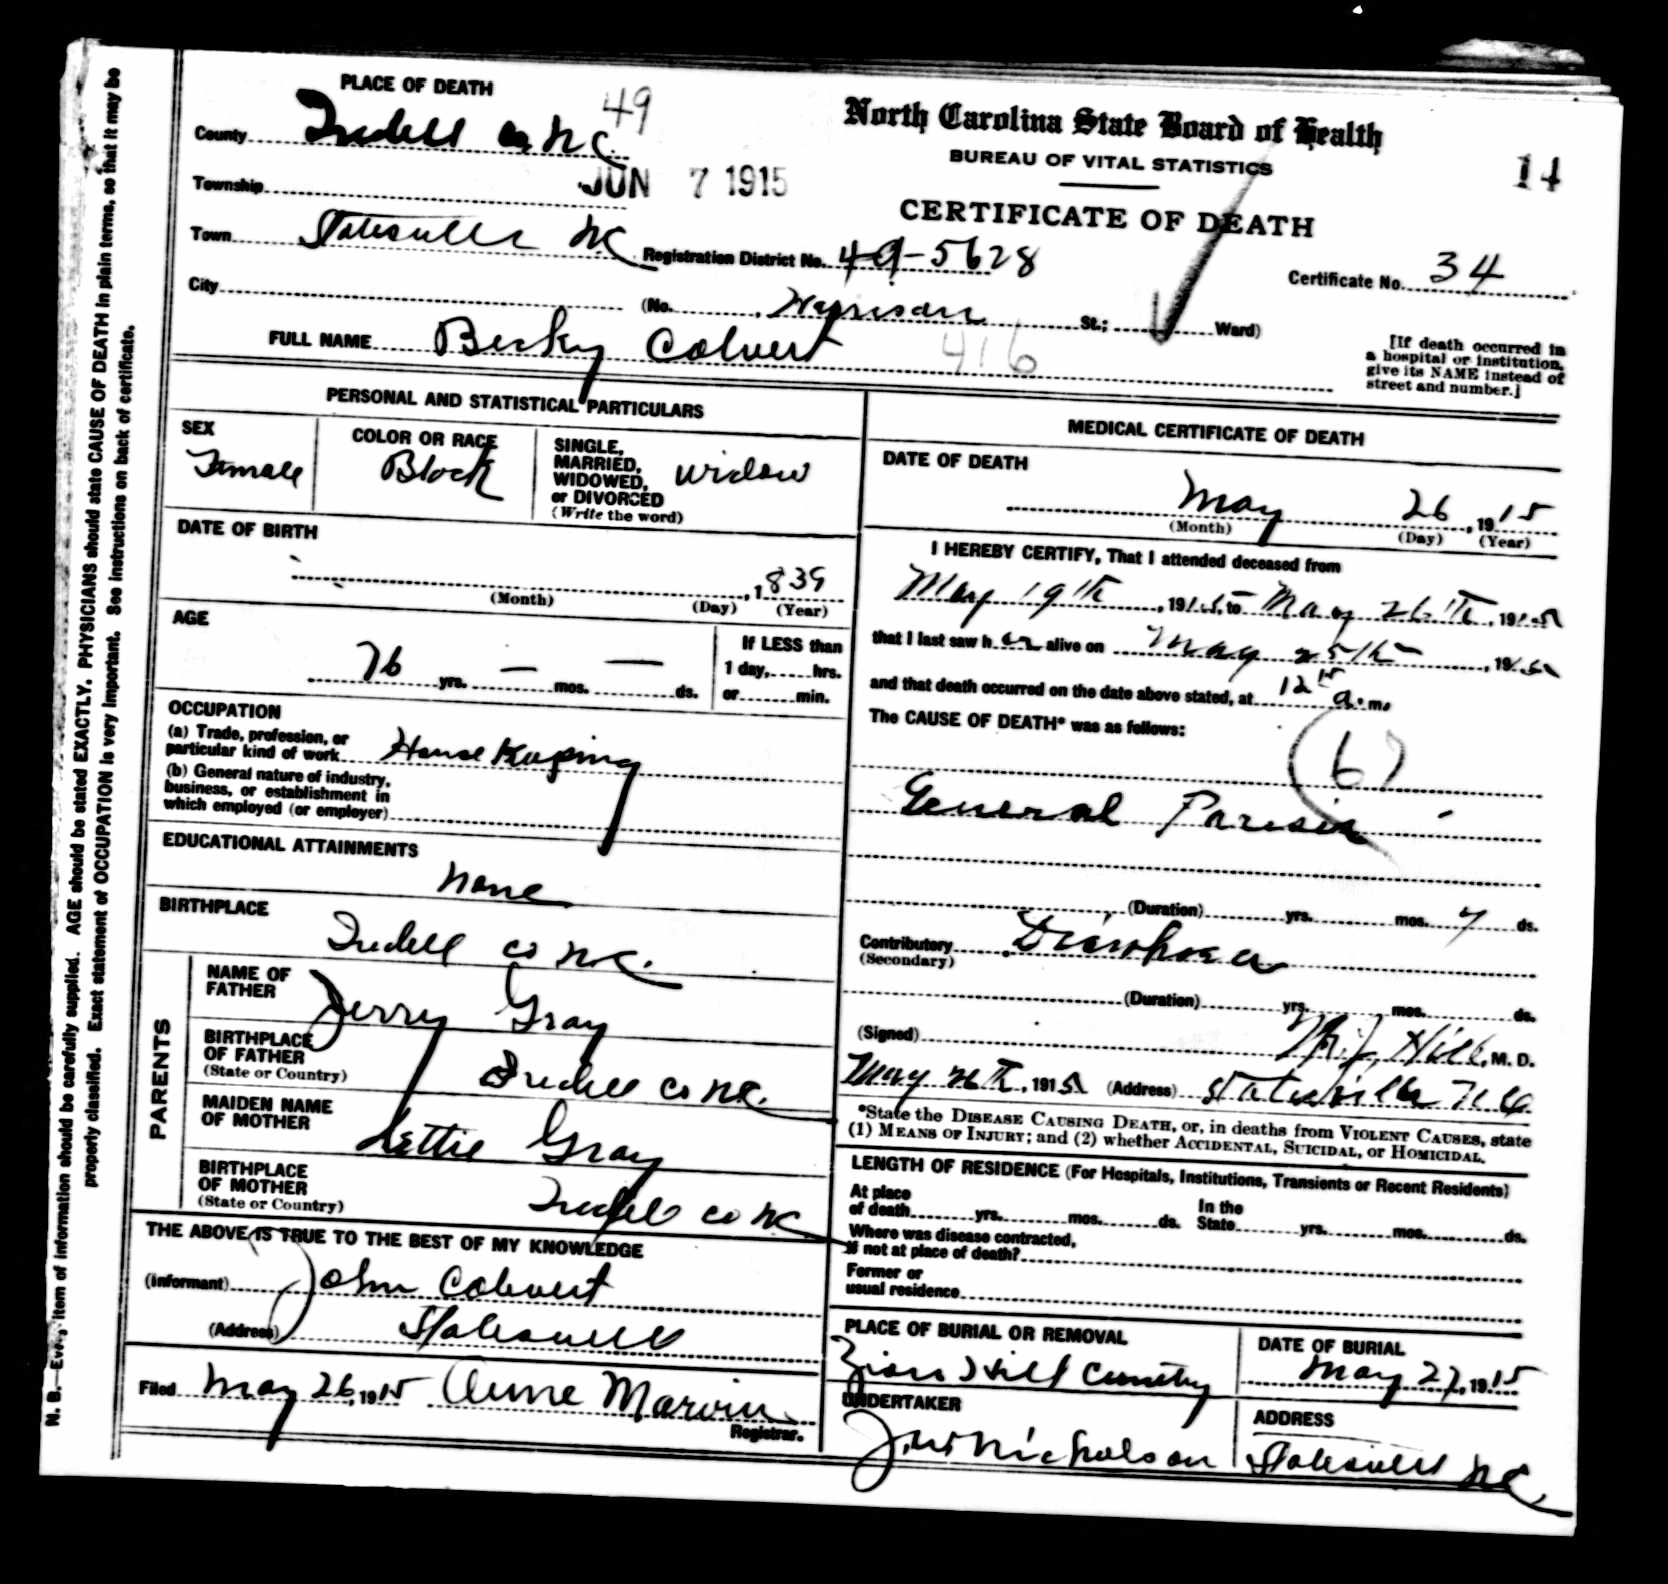 PLACE OF DEATH
49
County Iredell co N.C.
North Carolina State Board of Health
BUREAU OF VITAL STATISTICS
14
Township
JUN 7 1915
CERTIFICATE OF DEATH
Town Statesville N.C.
Registration District No. 49-5628
Certificate No. 34
City
(No. Harrison St.; Ward)
FULL NAME Becky Colvert
416
[If death occurred in
a hospital or institution,
give its NAME instead of
street and number.]
PERSONAL AND STATISTICAL PARTICULARS
SEX
Female
COLOR OR RACE
Black
SINGLE,
MARRIED,
WIDOWED,
or DIVORCED
(Write the word)
widow
DATE OF BIRTH
, 1839
(Month) (Day) (Year)
AGE
76 yrs. — mos. — ds.
If LESS than
1 day, hrs.
or min.
OCCUPATION
(a) Trade, profession, or
particular kind of work House Keeping
(b) General nature of industry,
business, or establishment in
which employed (or employer)
EDUCATIONAL ATTAINMENTS
None
BIRTHPLACE
Iredell co N.C.
PARENTS
NAME OF
FATHER
Jerry Gray
BIRTHPLACE
OF FATHER
(State or Country)
Iredell co N.C.
MAIDEN NAME
OF MOTHER
Lettie Gray
BIRTHPLACE
OF MOTHER
(State or Country)
Iredell co N.C.
THE ABOVE IS TRUE TO THE BEST OF MY KNOWLEDGE
(Informant) John Colvert
(Address) Statesville
Filed May 26, 1915 Anne Marvin
Registrar.
MEDICAL CERTIFICATE OF DEATH
DATE OF DEATH
May 26, 1915
(Month) (Day) (Year)
I HEREBY CERTIFY, That I attended deceased from
May 19th, 1915, to May 26th, 1915
that I last saw her alive on May 25th, 1915
and that death occurred on the date above stated, at 12 15 a.m.
The CAUSE OF DEATH* was as follows:
(6)
General Parisis
(Duration) yrs. mos. 7 ds.
Contributory Diarrhoea
(Secondary)
(Duration) yrs. mos. ds.
(Signed) Hill, M. D.
May 26th, 1915 (Address) Statesville N.C.
*State the DISEASE CAUSING DEATH, or, in deaths from VIOLENT CAUSES, state
(1) MEANS OF INJURY; and (2) whether ACCIDENTAL, SUICIDAL, or HOMICIDAL.
LENGTH OF RESIDENCE (For Hospitals, Institutions, Transients or Recent Residents)
At place
of death yrs. mos. ds.
In the
State yrs. mos. ds.
Where was disease contracted,
if not at place of death?
Former or
usual residence
PLACE OF BURIAL OR REMOVAL
Zion Hill Cemetry
DATE OF BURIAL
May 27, 1915
UNDERTAKER
J.W. Nicholson
ADDRESS
Statesville N.C.
N. B.—Every item of information should be carefully supplied. AGE should be stated EXACTLY. PHYSICIANS should state CAUSE OF DEATH in plain terms, so that it may be
properly classified. Exact statement of OCCUPATION is very important. See instructions on back of certificate.